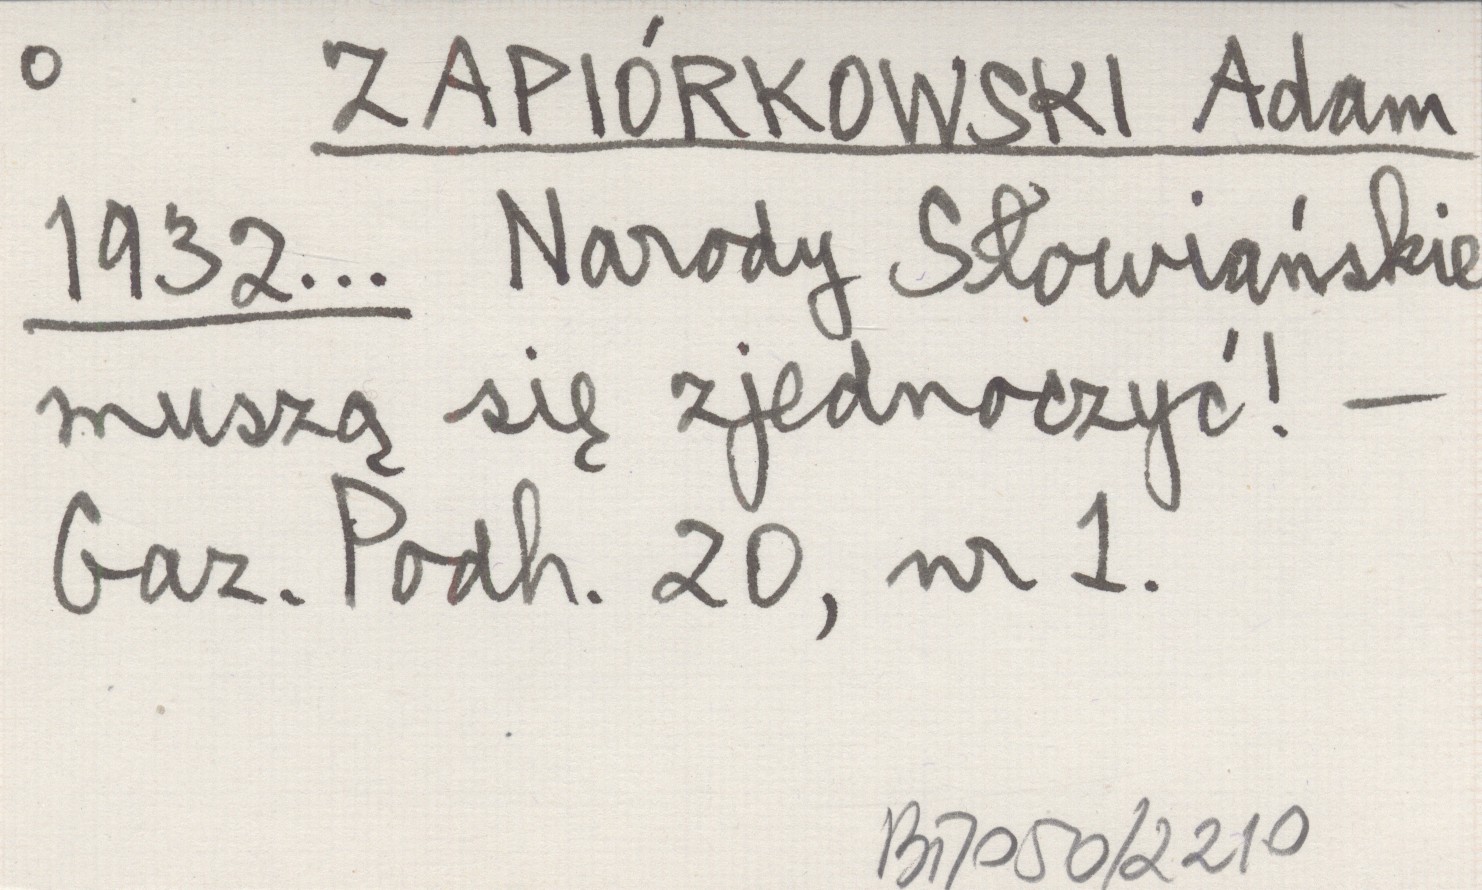 o ZAPIÓRKOWSKI Adam
1932... Narody Słowiańskie
muszą się zjednoczyć! —
Gaz. Podh. 20, nr 1.
Bi7050/2210